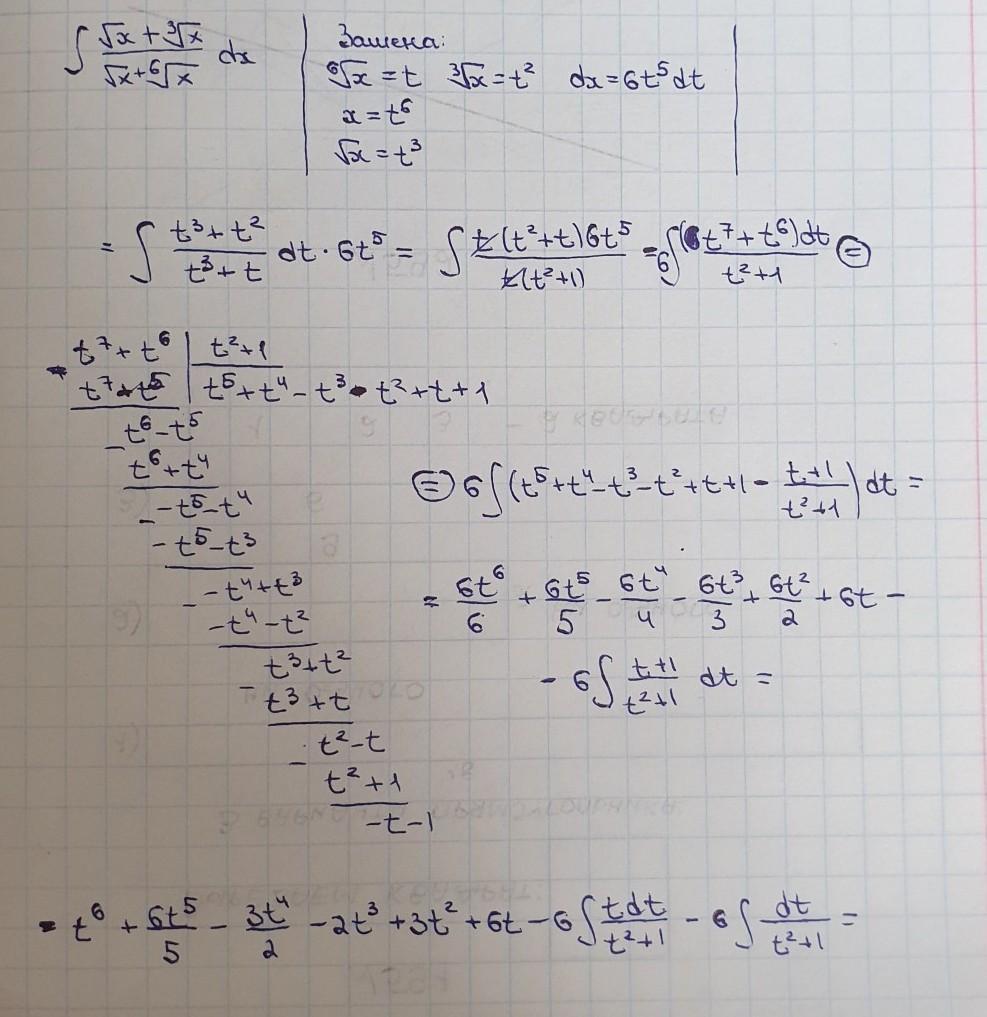 ∫ (√x + ∛x)/(√x + ⁶√x) dx | Замена: |
⁶√x = t   ∛x = t²   dx = 6t⁵dt
x = t⁶
√x = t³
= ∫ (t³ + t²)/(t³ + t) dt · 6t⁵ = ∫ t(t² + t)6t⁵/t(t² + 1) = 6∫ (t⁷ + t⁶)dt/(t² + 1) ⊜
t⁷ + t⁶ | t² + 1
t⁷ + t⁵ | t⁵ + t⁴ − t³ − t² + t + 1
t⁶ − t⁵
t⁶ + t⁴
−t⁵ − t⁴
−t⁵ − t³
−t⁴ + t³
−t⁴ − t²
t³ + t²
t³ + t
t² − t
t² + 1
−t − 1
⊜ 6∫(t⁵ + t⁴ − t³ − t² + t + 1 − (t + 1)/(t² + 1))dt =
= 6t⁶/6 + 6t⁵/5 − 6t⁴/4 − 6t³/3 + 6t²/2 + 6t −
− 6∫ (t + 1)/(t² + 1) dt =
= t⁶ + 6t⁵/5 − 3t⁴/2 − 2t³ + 3t² + 6t − 6∫ tdt/(t² + 1) − 6∫ dt/(t² + 1) =